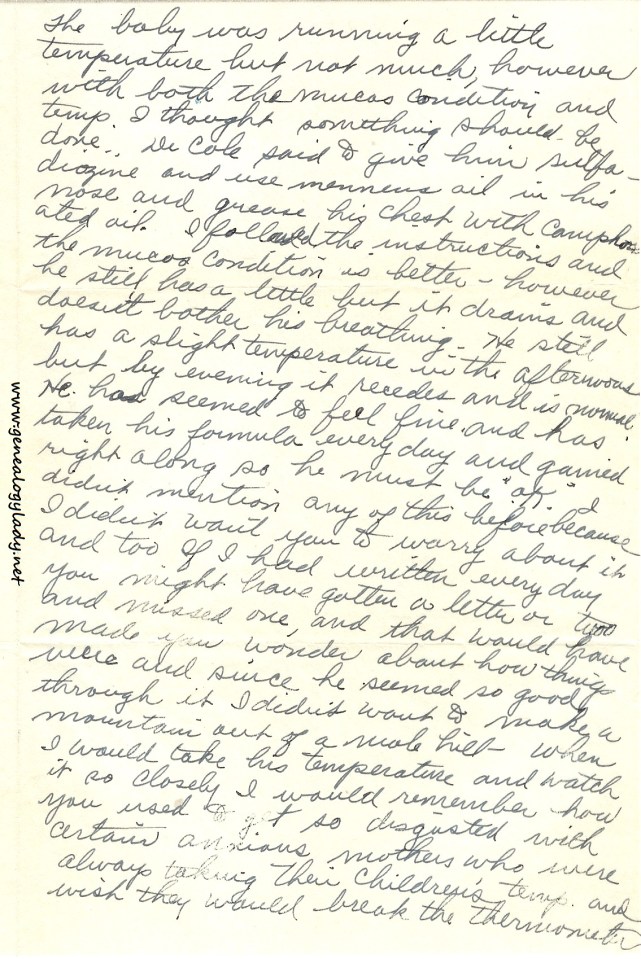 The baby was running a little
temperature but not much, however
with both the mucos condition and
temp. I thought something should be
done. Dr Cole said to give him sulfa-
diozine and use mennens oil in his
nose and grease his chest with camphor
ated oil. I followed the instructions and
the mucos condition is better - however
he still has a little but it drains and
doesn't bother his breathing. He still
has a slight temperature in the afternoons
but by evening it recedes and is normal.
He has seemed to feel fine and has
taken his formula every day and gained
right along so he must be "ok" I
didn't mention any of this before because
I didn't want you to worry about it
and too if I had written every day
you might have gotten a letter or two
and missed one, and that would have
made you wonder about how things
were and since he seemed so good
through it I didn't want to make a
mountain out of a mole hill - when
I would take his temperature and watch
it so closely I would remember how
you used to get so disgusted with
certain anxious mothers who were
always taking their children's temp. and
wish they would break the thermometer
www.genealogylady.net